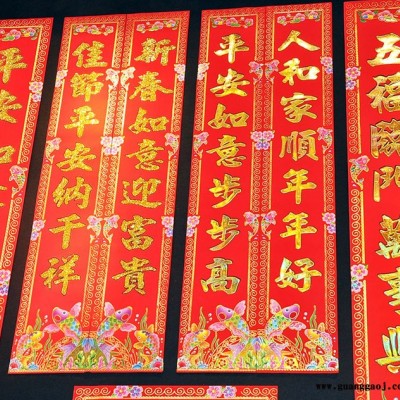 五福臨門萬事興
人和家順年年好
平安如意步步高
新春如意迎富貴
佳節平安納千祥
平安如意
www.guanggaoj.com